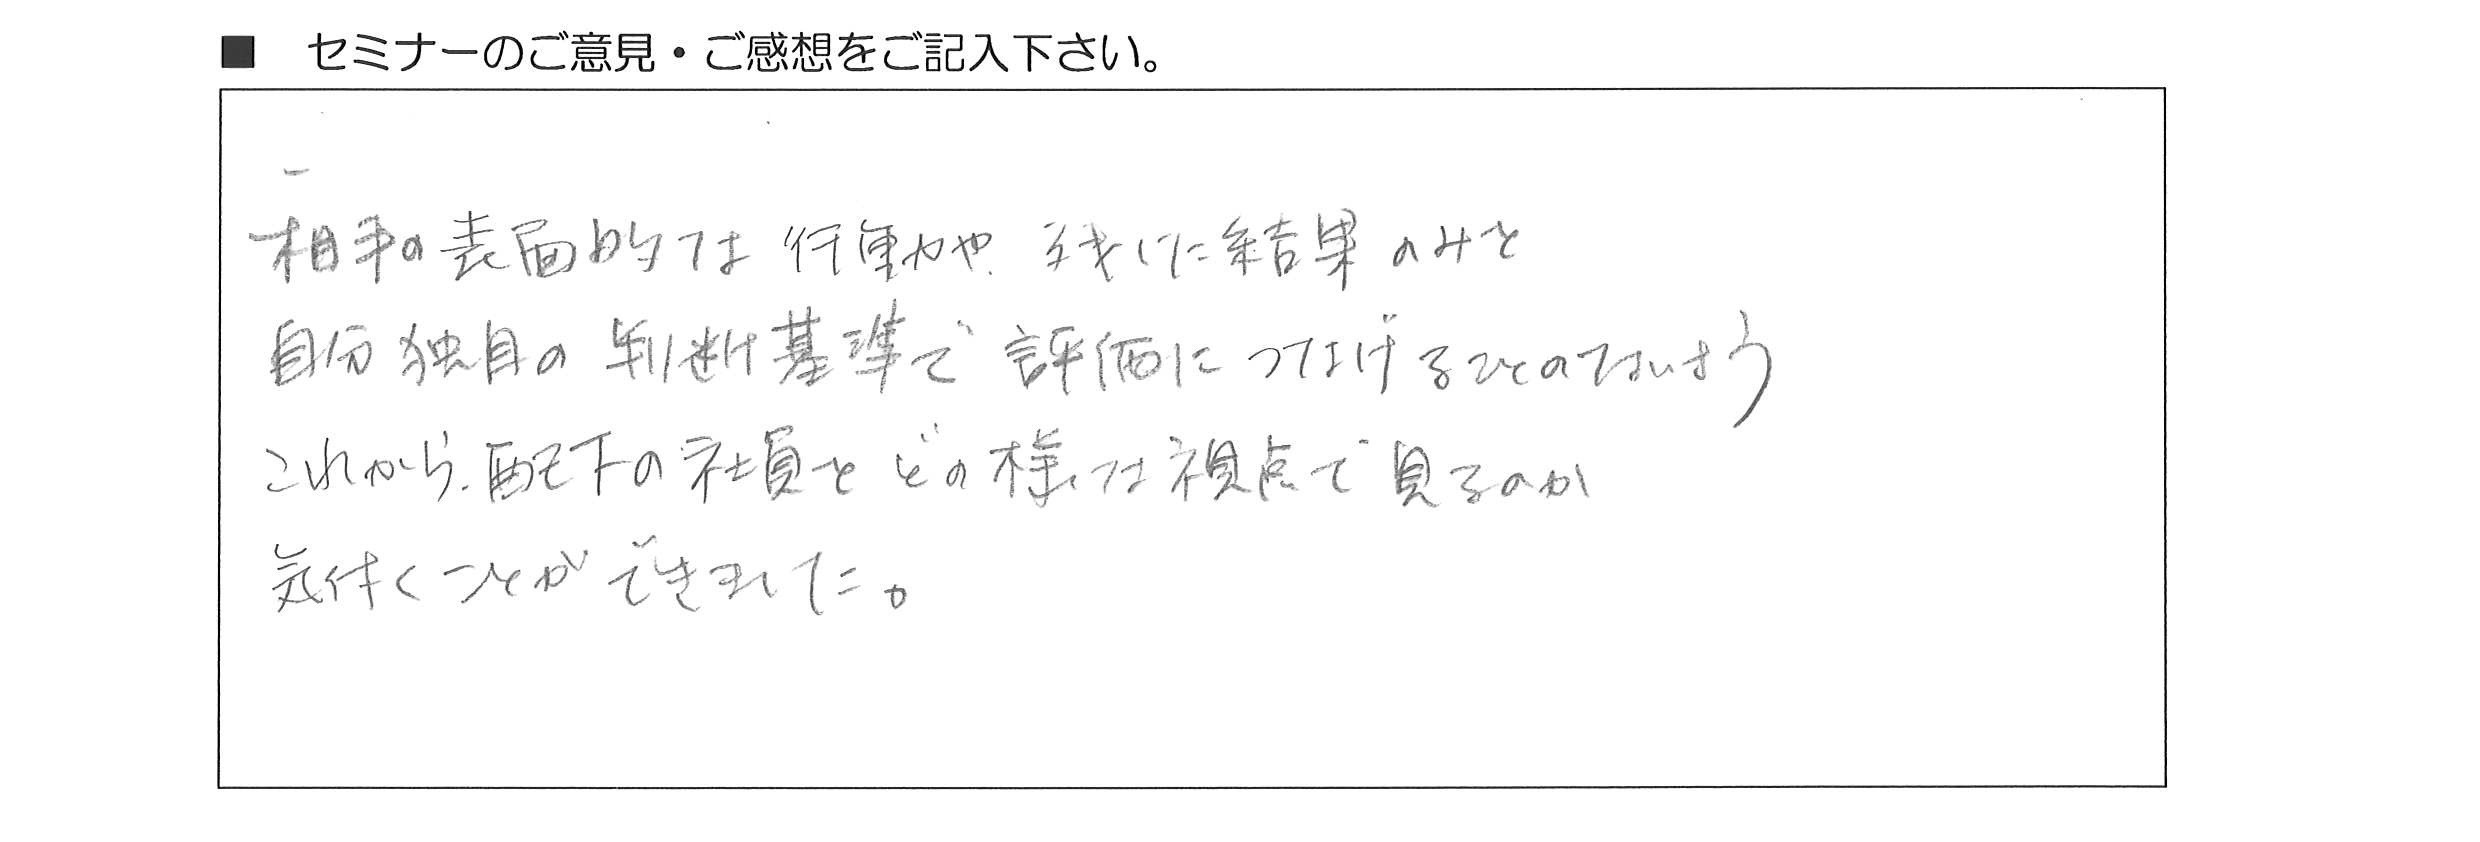 ■ セミナーのご意見・ご感想をご記入下さい。
相手の表面的な行動や、残した結果のみを
自分独自の判断基準で評価につなげることのないよう
これから、配下の社員をどの様な視点で見るのか
気付くことができました。